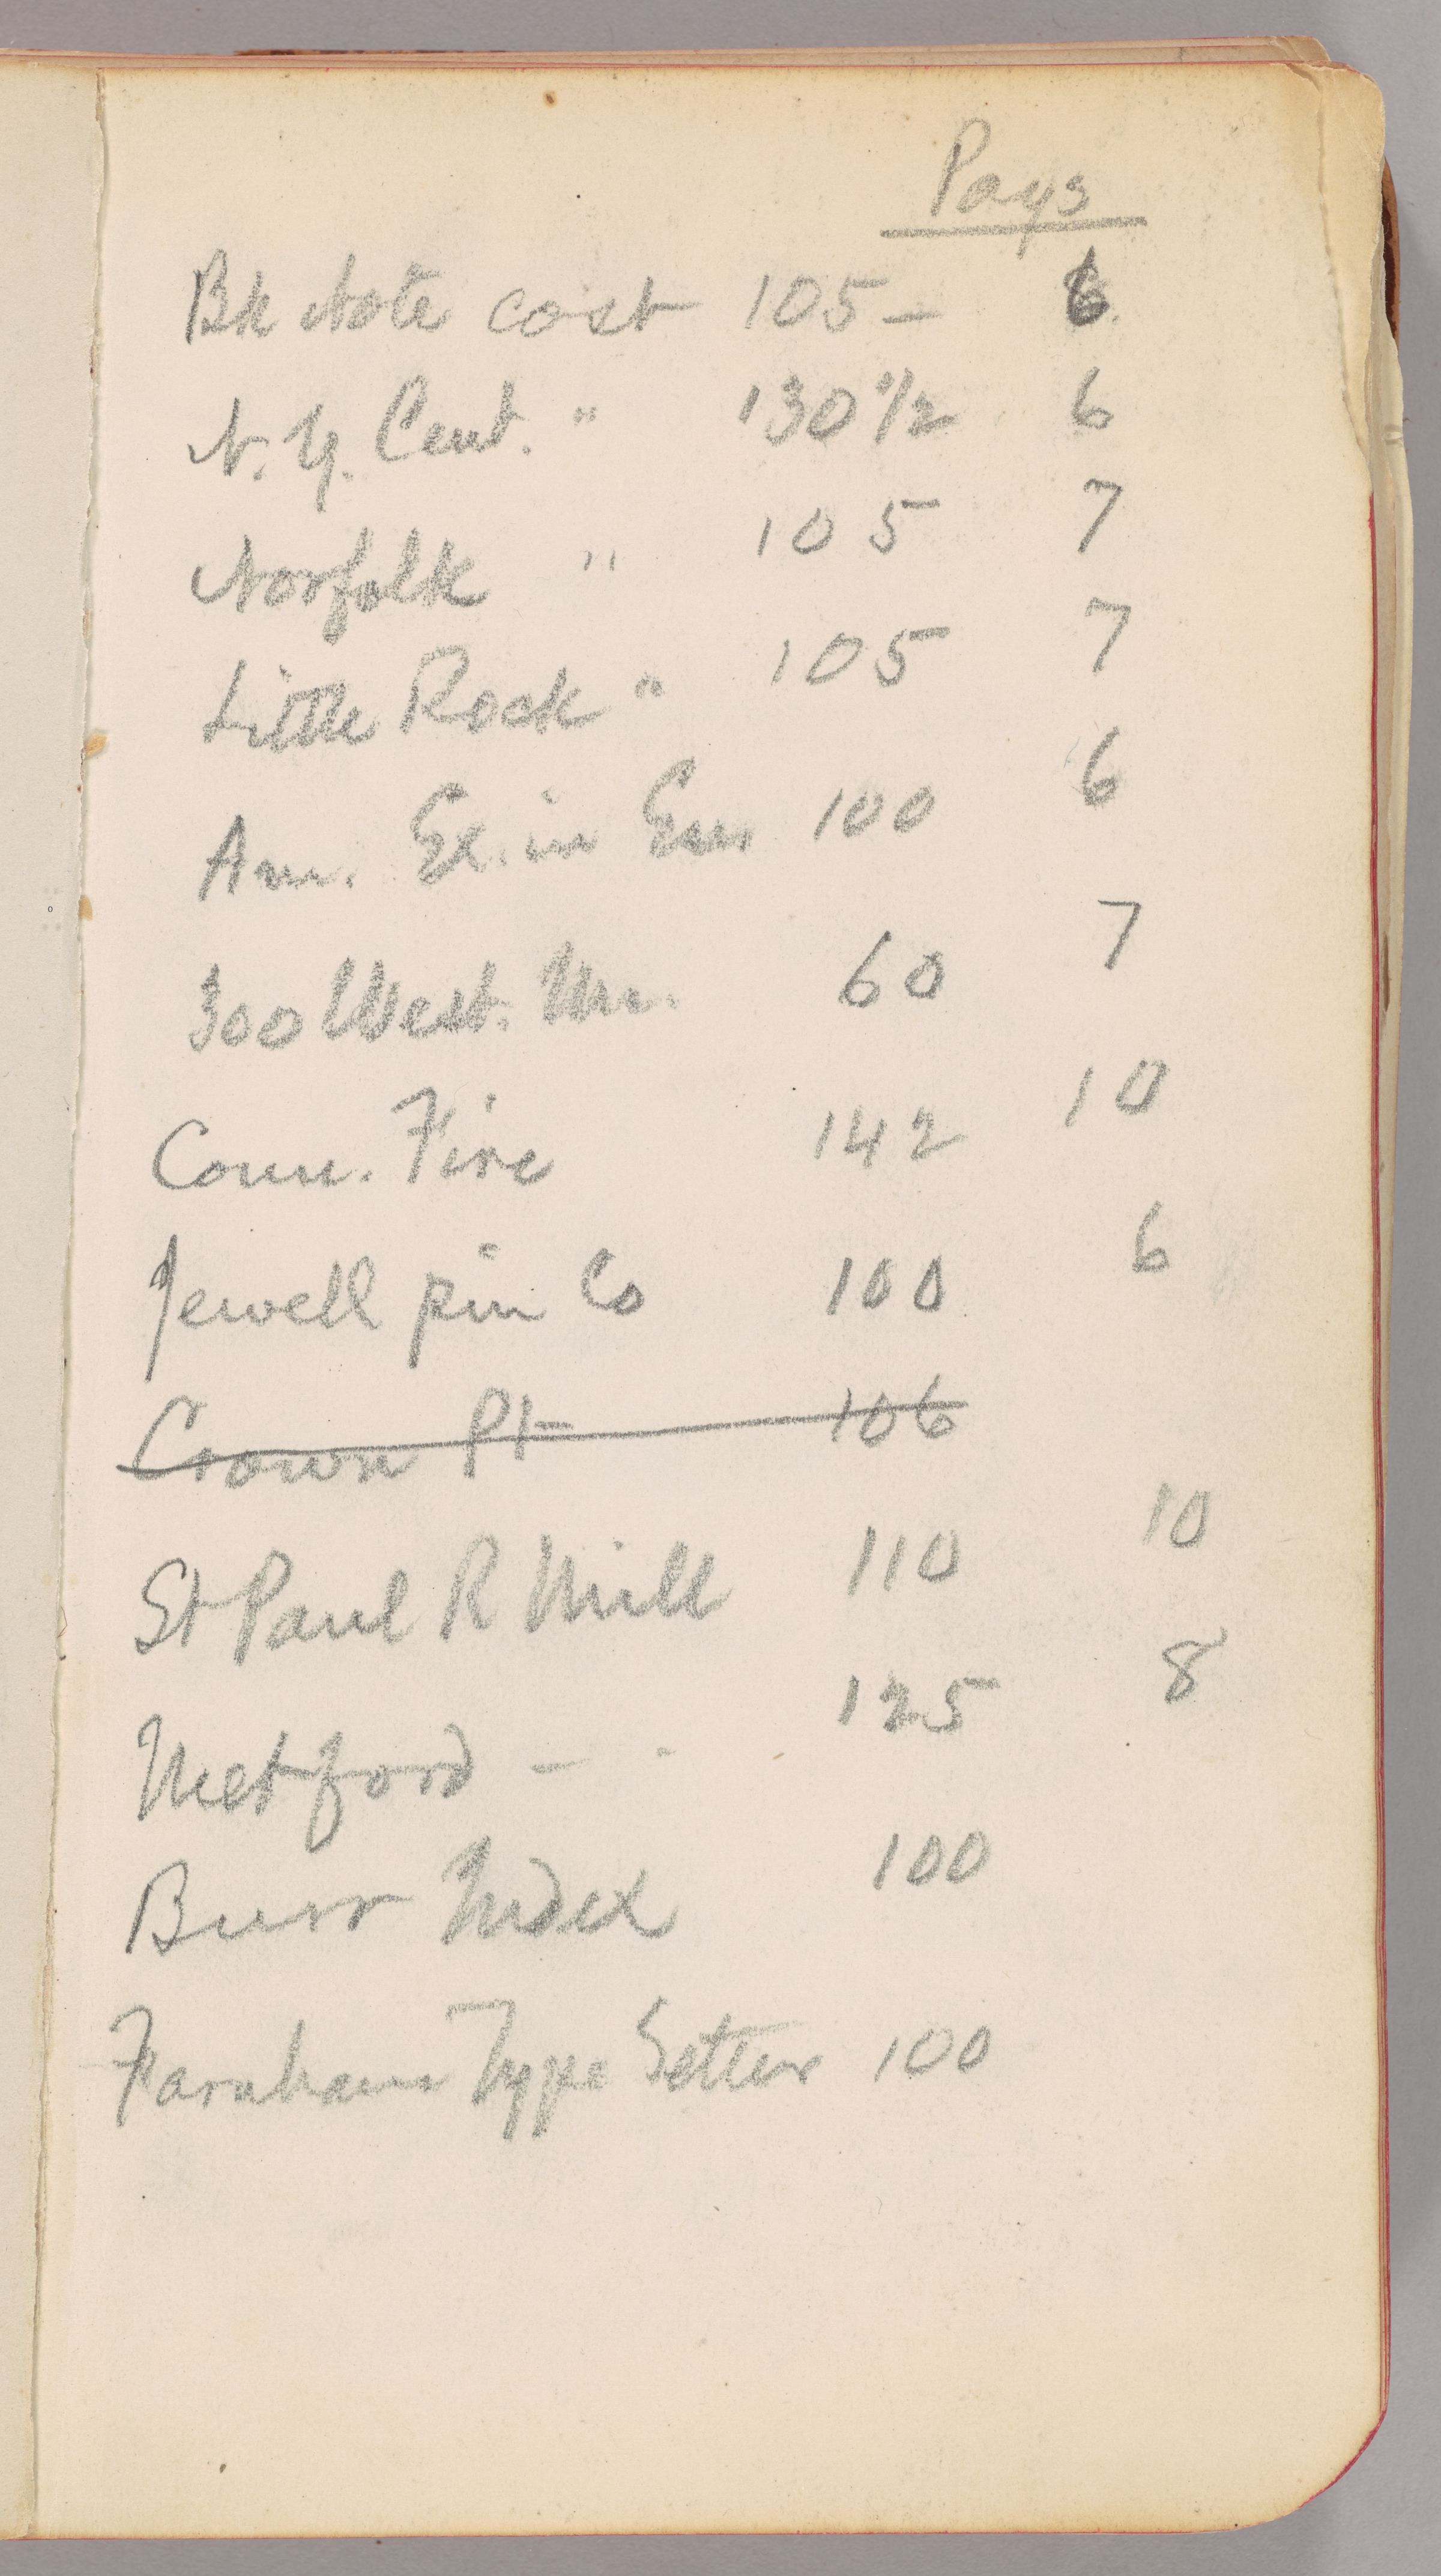 Pays
Bk Note cost 105 – 6
N. Y. Cent. " 130 1/2 6
Norfolk " 105 7
Little Rock " 105 7
Am. Ex. in Eur 100 6
300 West. Un. 60 7
Conn. Fire 142 10
Jewell pin Co 100 6
Crown Pt 106
St Paul R Mill 110 10
Metford – 125 8
Burr Index 100
Farnham Type Setter 100